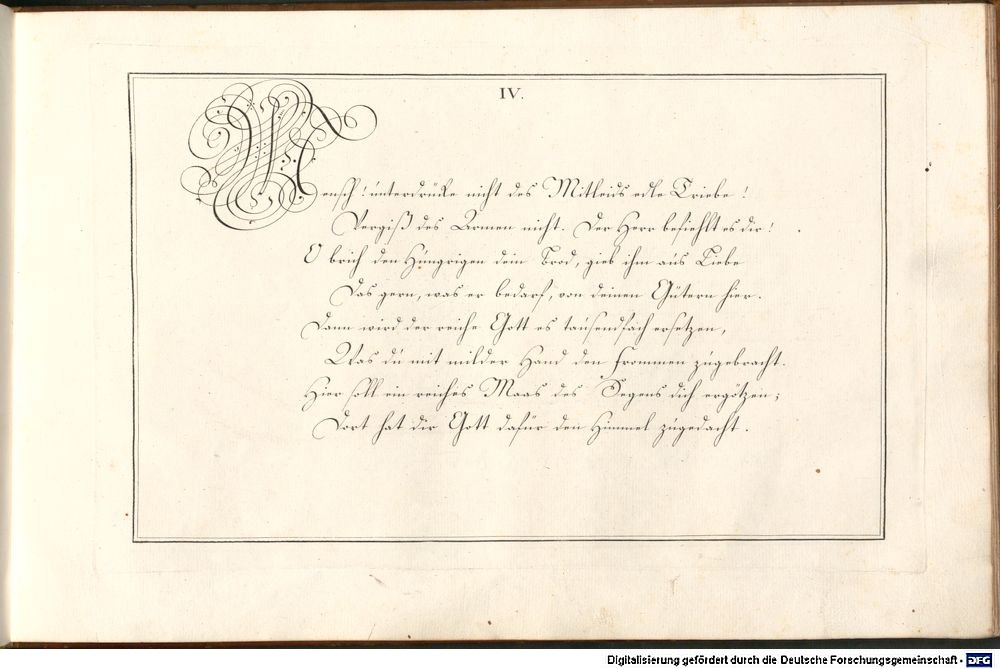 IV.
Mensch! unterdrücke nicht des Mitleids edle Triebe!
Vergiß des Armen nicht. Der Herr befiehlt es dir!
O brich den Hungrigen dein Brod, gieb ihm aus Liebe
Das gern, was er bedarf, von deinen Gütern hier.
Dann wird der reiche Gott es tausendfach ersetzen,
Was du mit milder Hand den Frommen zugebracht.
Hier soll ein reiches Maas des Segens dich ergötzen;
Dort hat dir Gott dafür den Himmel zugedacht.
Digitalisierung gefördert durch die Deutsche Forschungsgemeinschaft - DFG